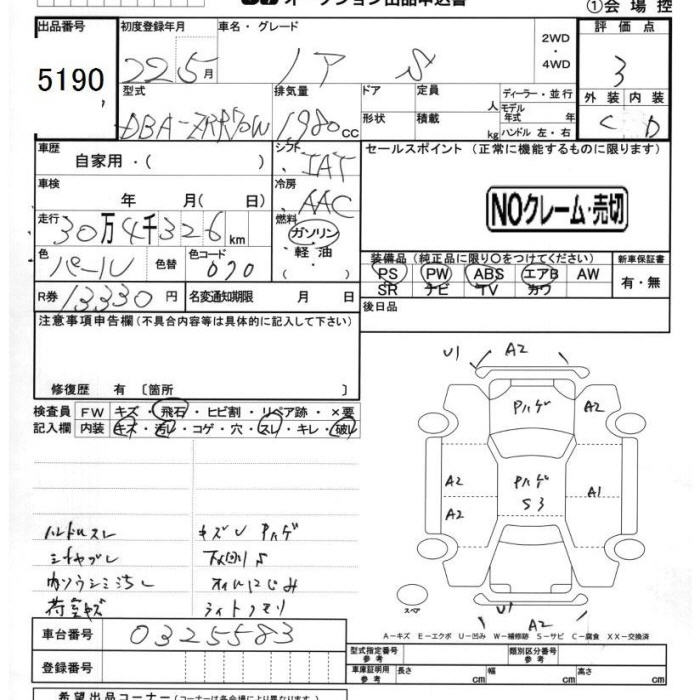 オークション出品申込書
①会場控
出品番号
5190
初度登録年月
22 5月
車名・グレード
ノア S
2WD
・
4WD
評価点
3
外装 内装
C D
型式
DBA-ZRR70W
排気量
1980cc
ドア
形状
定員
人
積載
kg
ディーラー・並行
モデル
年式 年
ハンドル 左・右
車歴
自家用・( )
シフト
IAT
セールスポイント (正常に機能するものに限ります)
NOクレーム・売切
車検
年 月( 日)
冷房
AAC
走行
30万4千326km
燃料
ガソリン
・
軽油
・( )
色
パール
色替
色コード
070
装備品 (純正品に限り〇をつけてください)
PS PW ABS エアB AW
SR ナビ TV カワ
新車保証書
有・無
R券 13330円
名変通知期限 月 日
後日品
注意事項申告欄(不具合内容等は具体的に記入して下さい)
修復歴 有 〔箇所 〕
検査員
記入欄
FW キズ・飛石・ヒビ割・リペア跡・×要
内装 キズ・汚レ・コゲ・穴・スレ・キレ・破レ
ハンドルスレ
シートヤブレ
内ソウシミ汚レ
荷室キズ
キズU Pハゲ
下回りS
オイルにじみ
ライトクモリ
U1 A2
Pハゲ
A2
A2
A2
Pハゲ
S3
A1
スペア
U1
A2
A-キズ E-エクボ U-凹み W-補修跡 S-サビ C-腐食 XX-交換済
車台番号
0325583
登録番号
型式指定番号
参考
類別区分番号
参考
車庫証明用
参考
長さ cm
幅 cm
高さ cm
希望出品コーナー(コーナーは各会場により異なります)